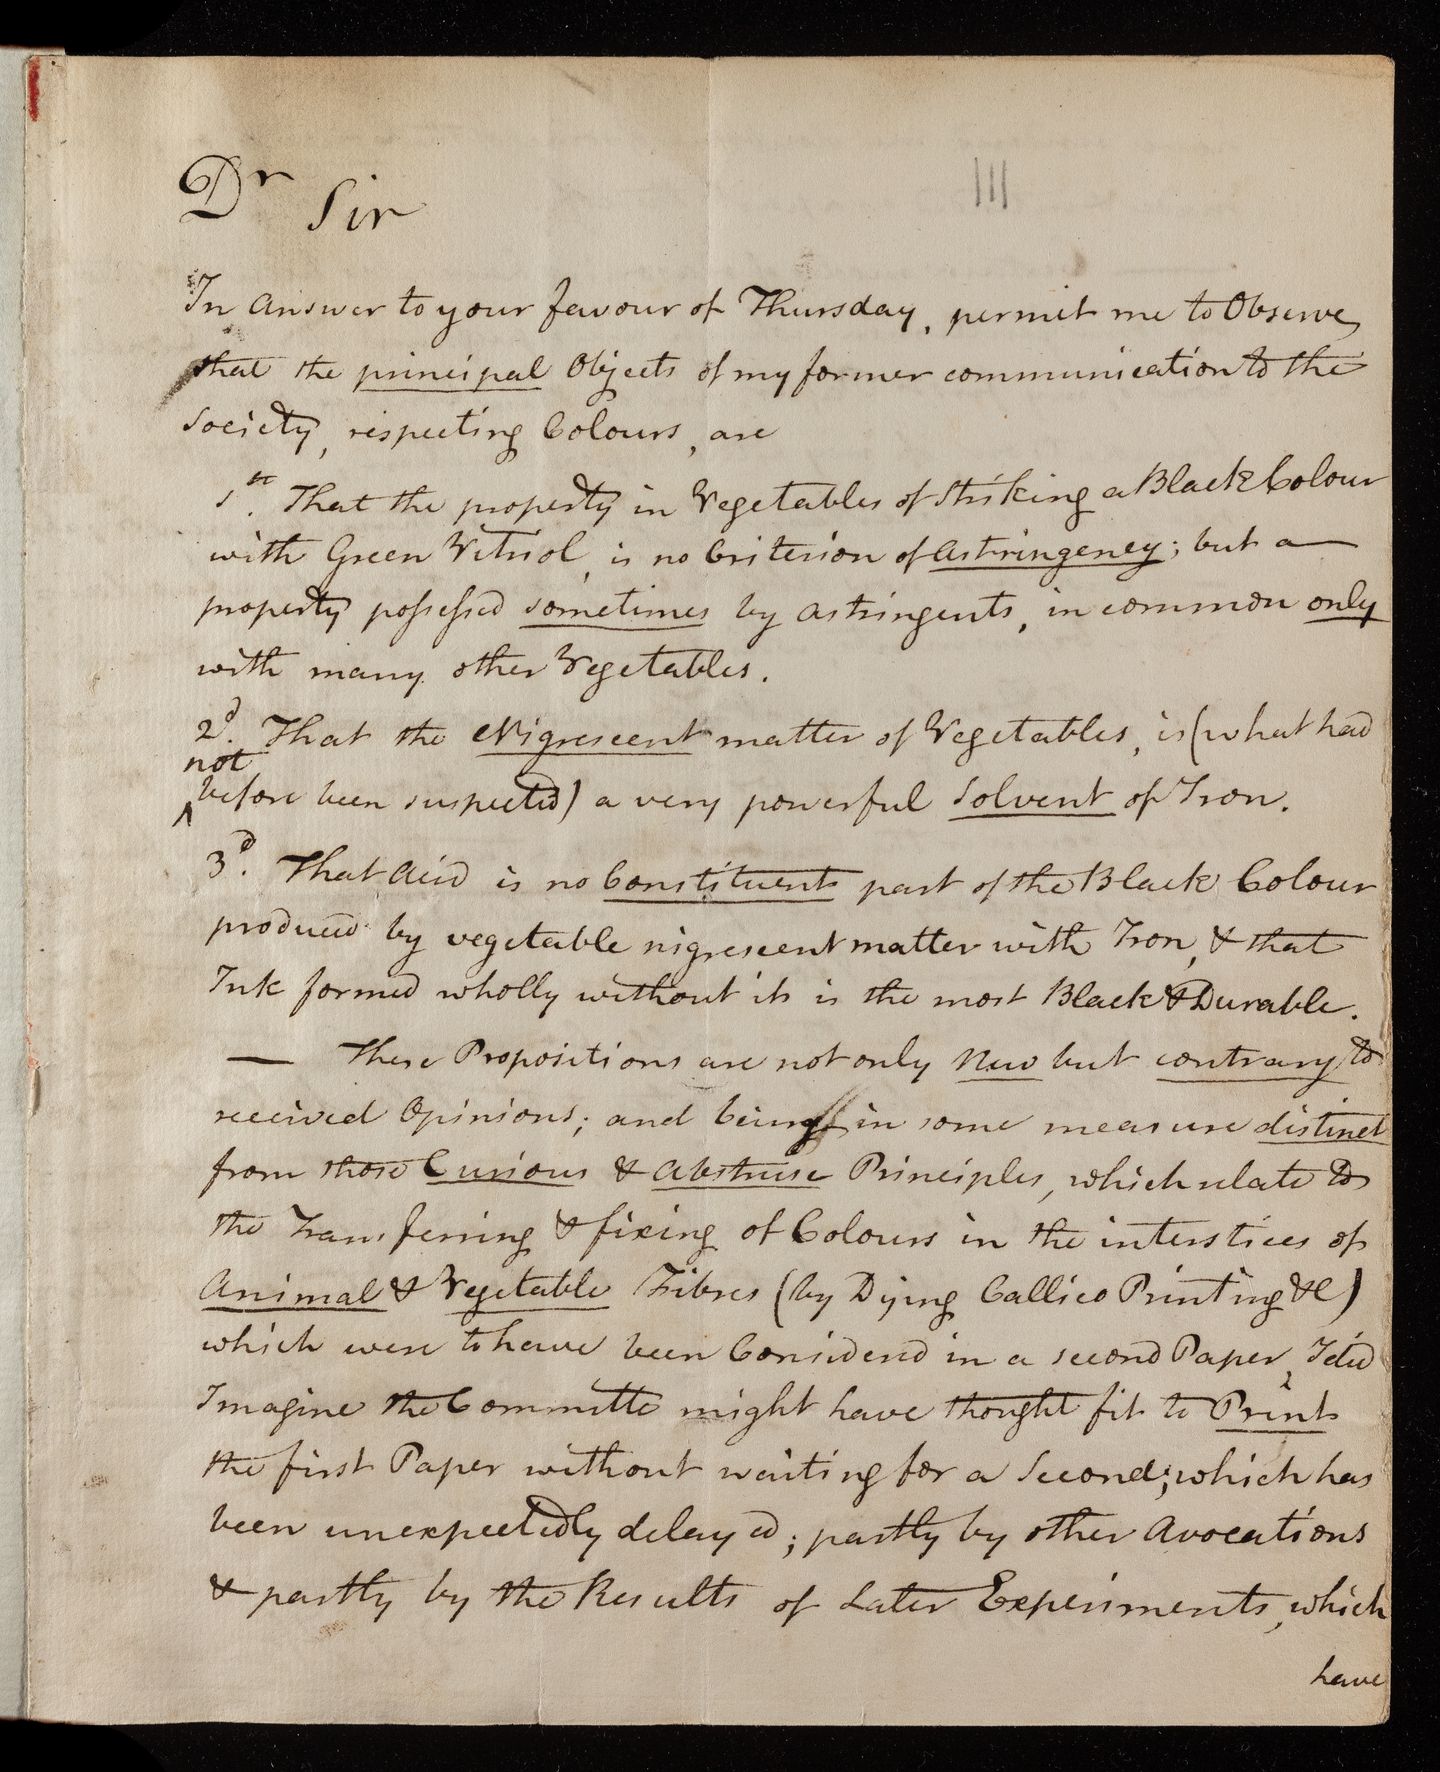 Dr Sir
III
In answer to your favour of Thursday, permit me to Observe
that the principal Objects of my former communication to the
Society, respecting Colours, are
1st. That the property in Vegetables of striking a Black Colour
with Green Vitriol, is no Criterion of astringency; but a
property possessed sometimes by astringents, in common only
with many other Vegetables.
2d. That the Nigrescent matter of Vegetables, is (what had
not
before been suspected) a very powerful Solvent of Iron.
3d. That Acid is no Constituent part of the Black Colour
produced by vegetable nigrescent matter with Iron, & that
Ink formed wholly without it is the most Black & Durable.
— These Propositions are not only New but contrary to
received Opinions; and being in some measure distinct
from those Curious & Abstruse Principles, which relate to
the Transferring & fixing of Colours in the interstices of
Animal & Vegetable Fibres (by Dying Callico Printing &c)
which were to have been Considered in a second Paper, I did
Imagine the Committe might have thought fit to Print
the first Paper without waiting for a Second; which has
been unexpectedly delayed; partly by other Avocations
& partly by the Results of Later Experiments, which
have